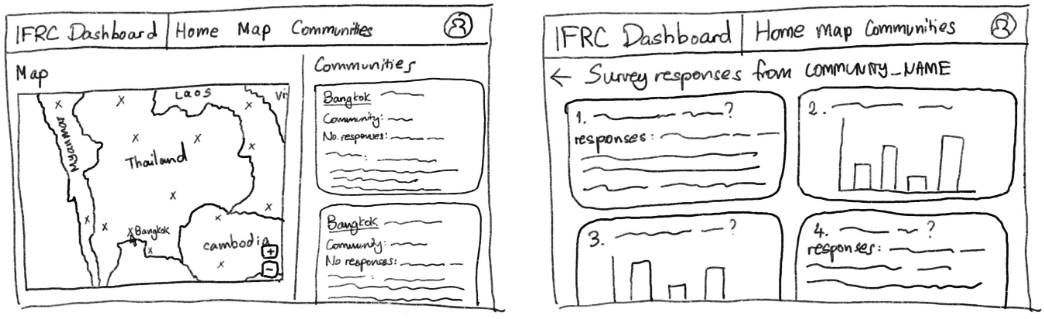 IFRC Dashboard Home Map Communities
Map
Laos
Vi
Myanmar
Thailand
Bangkok
cambodia
+
-
Communities
Bangkok
Community:
No responses:
Bangkok
Community:
No responses:
IFRC Dashboard Home map Communities
← Survey responses from COMMUNITY_NAME
1. ?
responses:
2.
3. ?
4. ?
responses: